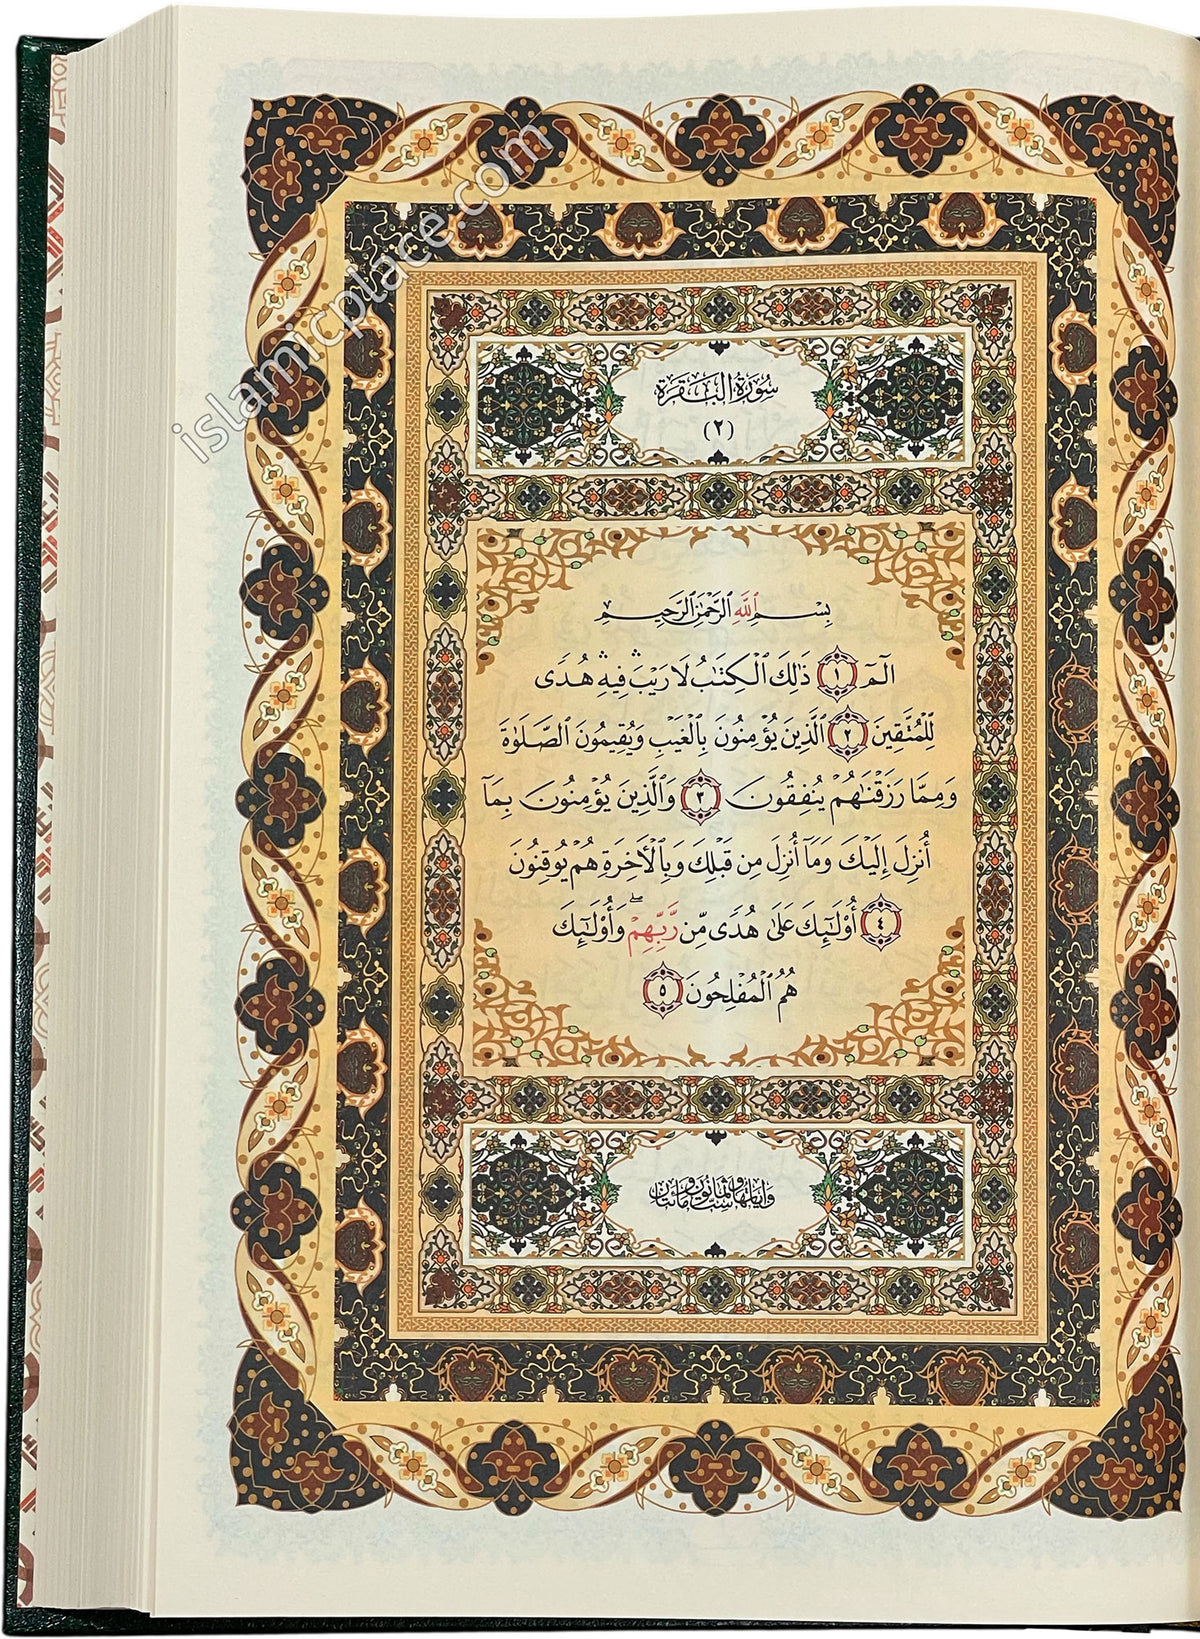 islamicplace.com
سُورَةُ الْبَقَرَة
(٢)
بِسْمِ ٱللَّهِ ٱلرَّحْمَٰنِ ٱلرَّحِيمِ
الٓمٓ ١ ذَٰلِكَ ٱلْكِتَٰبُ لَا رَيْبَ ۛ فِيهِ ۛ هُدًى
لِّلْمُتَّقِينَ ٢ ٱلَّذِينَ يُؤْمِنُونَ بِٱلْغَيْبِ وَيُقِيمُونَ ٱلصَّلَوٰةَ
وَمِمَّا رَزَقْنَٰهُمْ يُنفِقُونَ ٣ وَٱلَّذِينَ يُؤْمِنُونَ بِمَآ
أُنزِلَ إِلَيْكَ وَمَآ أُنزِلَ مِن قَبْلِكَ وَبِٱلْءَاخِرَةِ هُمْ يُوقِنُونَ
٤ أُو۟لَٰٓئِكَ عَلَىٰ هُدًى مِّن رَّبِّهِمْ ۖ وَأُو۟لَٰٓئِكَ
هُمُ ٱلْمُفْلِحُونَ ٥